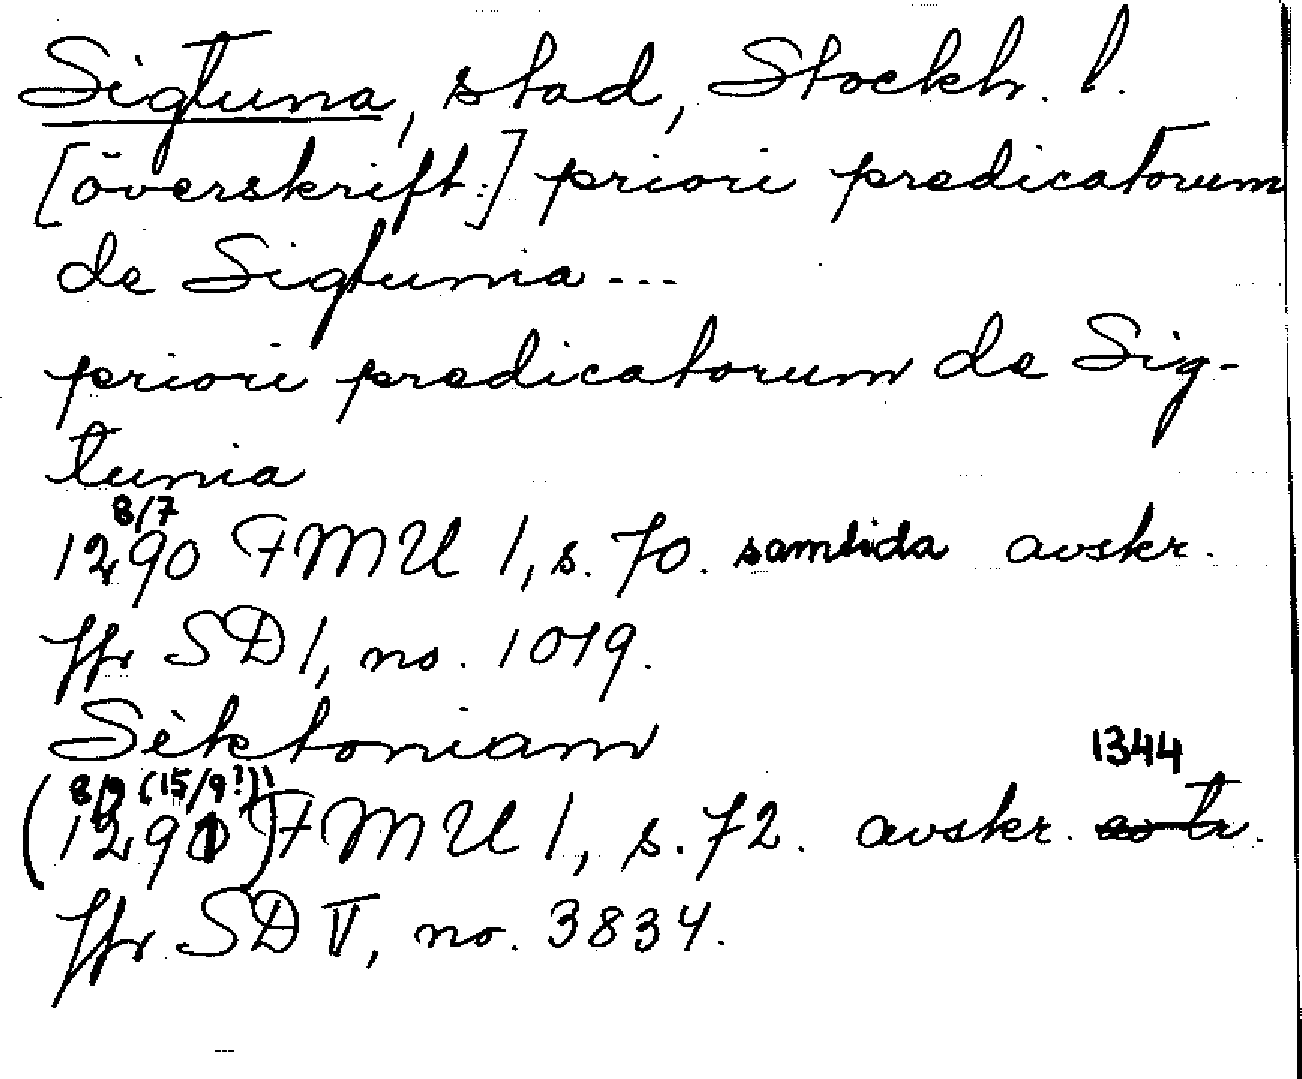 Sigtuna, stad, Stockh. l.
[överskift:] priori predicatorum
de Sigtunia...
priori predicatorum de Sig-
tunia
8/7
1290 FMU 1, s. 70. samtida avskr.
Jfr SD 1, no. 1019.
Sèktoniam
1344
8/9 (15/9?)
(1291) FMU 1, s. 72. avskr.
Jfr SD V, no. 3834.